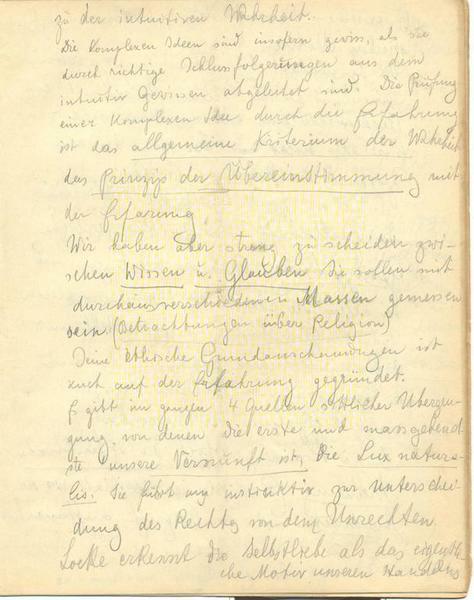 zu der intuitiven Wahrheit.
Die Komplexen Ideen sind insofern gewiss, als sie
durch richtige Schlussfolgerungen aus dem
intuitiv Gewissen abgeleitet sind. Die Prüfung
einer Komplexen Idee durch die Erfahrung
ist das allgemeine Kriterium der Wahrheit
das Prinzip der Übereinstimmung mit
der Erfarung.
Wir haben aber streng zu scheiden zwi-
schen Wissen u. Glauben Sie sollen mit
durchaus verschiedenen Massen gemessen
sein. (Betrachtungen über Religion)
Seine Ethische Grundanschauungen ist
auch auf der Erfahrung gegründet.
Es gibt im ganzen 4 Quellen sittlicher Überzeu-
gung, von denen die erste und massgebend-
ste unsere Vernunft ist, Die Lux natura-
lis. Sie führt uns instinktiv zur Unterschei-
dung des Rechtes von dem Unrechten.
Locke erkennt die Selbstliebe als das eigentli-
che Motiv unseren Handelns